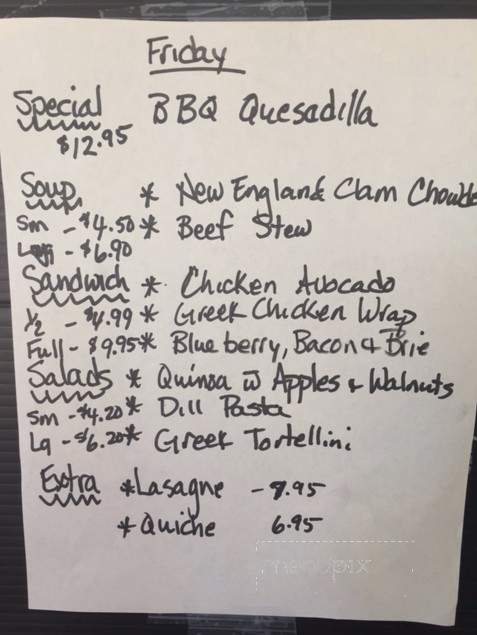 Friday
Special BBQ Quesadilla
$12.95
Soup * New England Clam Chowde
Sm - $4.50 * Beef Stew
Lg - $6.90
Sandwich * Chicken Avocado
1/2 - $4.99 * Greek Chicken Wrap
Full - $9.95 * Blueberry, Bacon & Brie
Salads * Quinoa w Apples & Walnuts
Sm - $4.20 * Dill Pasta
Lg - $6.20 * Greek Tortellini
Extra * Lasagne -
* Quiche 6.95
menupix